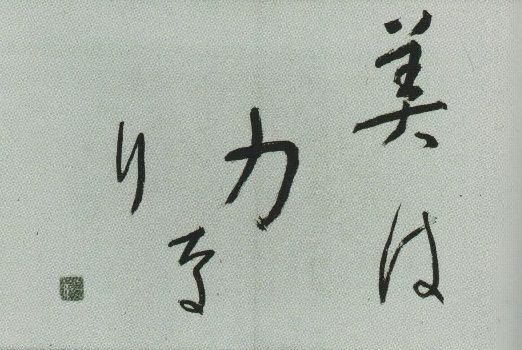 美は
力
な
り